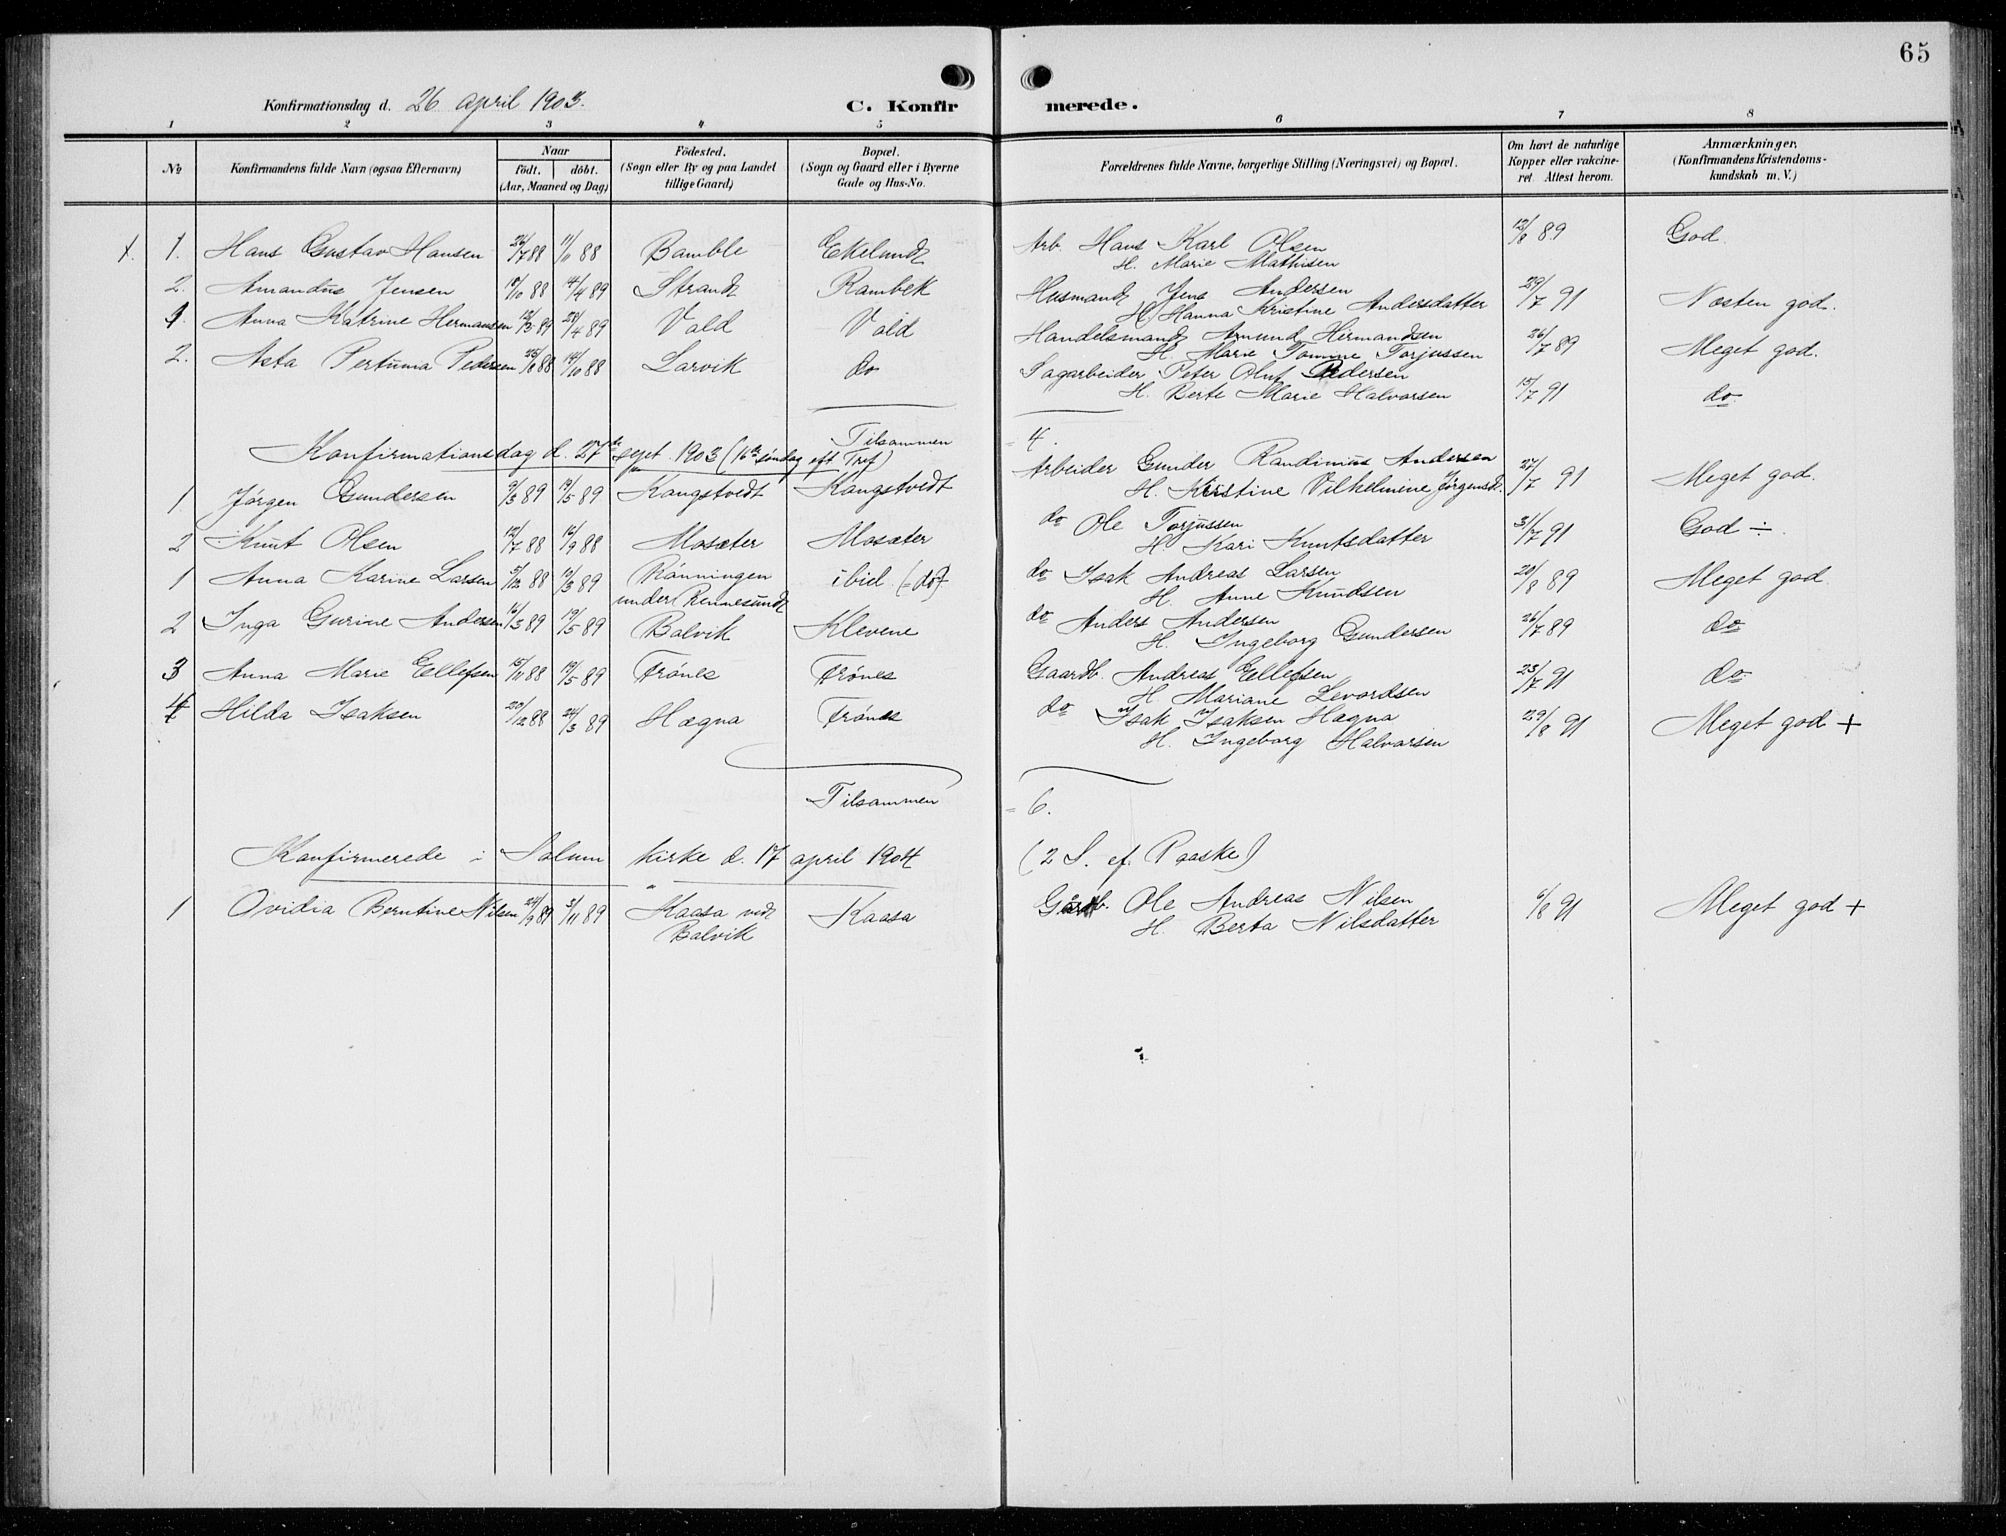 65
Konfirmationsdag d. 26 april 1903.
C. Konfir merede.
1 2 3 4 5 6 7 8
No
Konfirmandens fulde Navn (ogsaa Efternavn)
Naar
født. døbt.
(Aar, Maaned og Dag)
Fødested.
(Sogn eller By og paa Landet
tillige Gaard)
Bopæl.
(Sogn og Gaard eller i Byerne
Gade og Hus-No.
Forældrenes fulde Navne, borgerlige Stilling (Næringsvei) og Bopæl.
Om havt de naturlige
Kopper eller vakcine-
ret. Attest herom.
Anmærkninger.
(Konfirmandens Kristendoms-
kundskab m. V.)
1. 1. Hans Gustav Hansen 26/7 88 11/11 88 Bamble Ekelund Arb. Hans Karl Olsen 12/8 89 God.
H. Marie Mathisen
2. Amandus Jensen 18/10 88 14/4 89 Strand Rambek Husmand Jens Andersen 29/7 91 Næsten god.
H. Hanna Kristine Andersdatter
1 Anna Katrine Hermansen 12/3 89 28/4 89 Vald Vald Handelsmand Amund Hermandsen 26/7 89 Meget god.
H. Marie Tomine Torjussen
2. Asta Pertuma Pedersen 25/8 88 14/10 88 Larvik do Sagarbeider Peter Oluf Pedersen 15/7 91 do
H. Berte Marie Halvorsen
Tilsammen = 4.
Konfirmationsdag d. 27de sept. 1903 (16de søndag eft Tref)
1 Jørgen Gundersen 9/3 89 19/5 89 Kangstvedt Kangstvedt Arbeider Gunder Randinius Andersen 27/7 91 Meget god.
H. Kristine Vilhelmine Jørgensd.
2 Knut Olsen 12/7 88 16/9 88 Mosæter Mosæter do Ole Torjussen 31/7 91 God ÷.
H. Kari Knutsdatter
1 Anna Karine Larsen 5/12 88 10/3 89 Rønningen ibid. (= do) do Isak Andreas Larsen 20/8 89 Meget god
under Rennesund H. Anne Knudsen
2 Inga Gurine Andersen 16/3 89 19/5 89 Balvik Klevene do Anders Andersen 26/7 89 do
H. Ingeborg Gundersen
3 Anna Marie Ellefsen 15/11 88 19/5 89 Trønes Trønes Gaardb. Andreas Ellefsen 23/7 91 do
H. Mariane Levordsen
4 Hilda Isaksen 20/12 88 24/3 89 Hægna Trønes do Isak Isaksen Hægna 29/8 91 Meget god +
H. Ingeborg Halvorsen
Tilsammen = 6.
Konfirmerede i Solum kirke d. 17 april 1904 (2 S. ef. Paaske)
1 Ovidia Berntine Nilsen 24/9 89 3/11 89 Kaasa ved Kaasa Gårdb. Ole Andreas Nilsen 6/8 91 Meget god +
Balvik H. Berta Nilsdatter